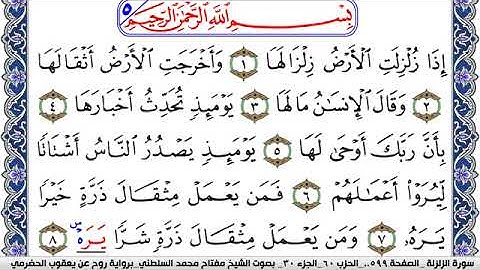 بِسْمِ اللَّهِ الرَّحْمَٰنِ الرَّحِيمِ ٥
إِذَا زُلْزِلَتِ الْأَرْضُ زِلْزَالَهَا ١ وَأَخْرَجَتِ الْأَرْضُ أَثْقَالَهَا
٢ وَقَالَ الْإِنسَانُ مَا لَهَا ٣ يَوْمَئِذٍ تُحَدِّثُ أَخْبَارَهَا ٤
بِأَنَّ رَبَّكَ أَوْحَىٰ لَهَا ٥ يَوْمَئِذٍ يَصْدُرُ النَّاسُ أَشْتَاتًا
لِّيُرَوْا أَعْمَالَهُمْ ٦ فَمَن يَعْمَلْ مِثْقَالَ ذَرَّةٍ خَيْرًا
يَرَهُۥ ٧ وَمَن يَعْمَلْ مِثْقَالَ ذَرَّةٍ شَرًّا يَرَهُۥ ٨
سورة الزلزلة _ الصفحة ٥٩٩ _ الحزب ٦٠ _ الجزء ٣٠ _ بصوت الشيخ مفتاح محمد السلطني _ برواية روح عن يعقوب الحضرمي